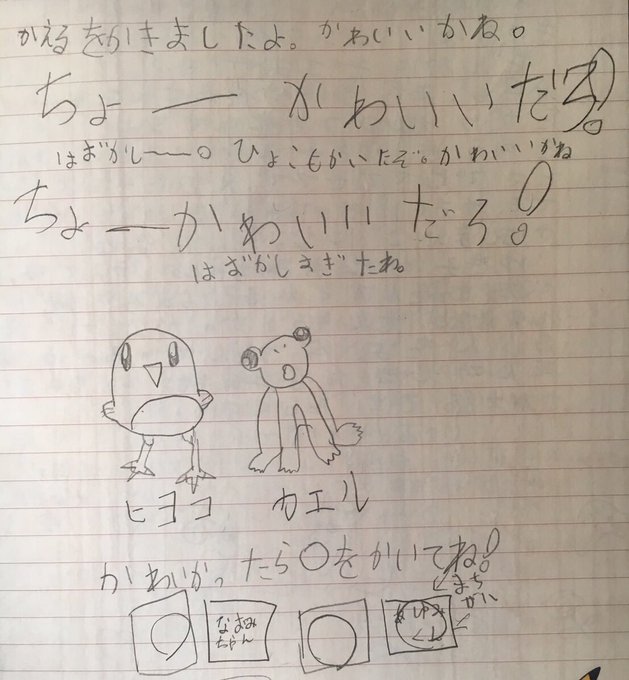 かえるをかきましたよ。かわいいかね。
ちょーかわいいだろ!
はずかしー。ひよこもかいたぞ。かわいいかね
ちょーかわいいだろ!
はずかしすぎたね。
ヒヨコ カエル
かわいかったら○をかいてね!
まちがい
なおみ
ちゃん
くん